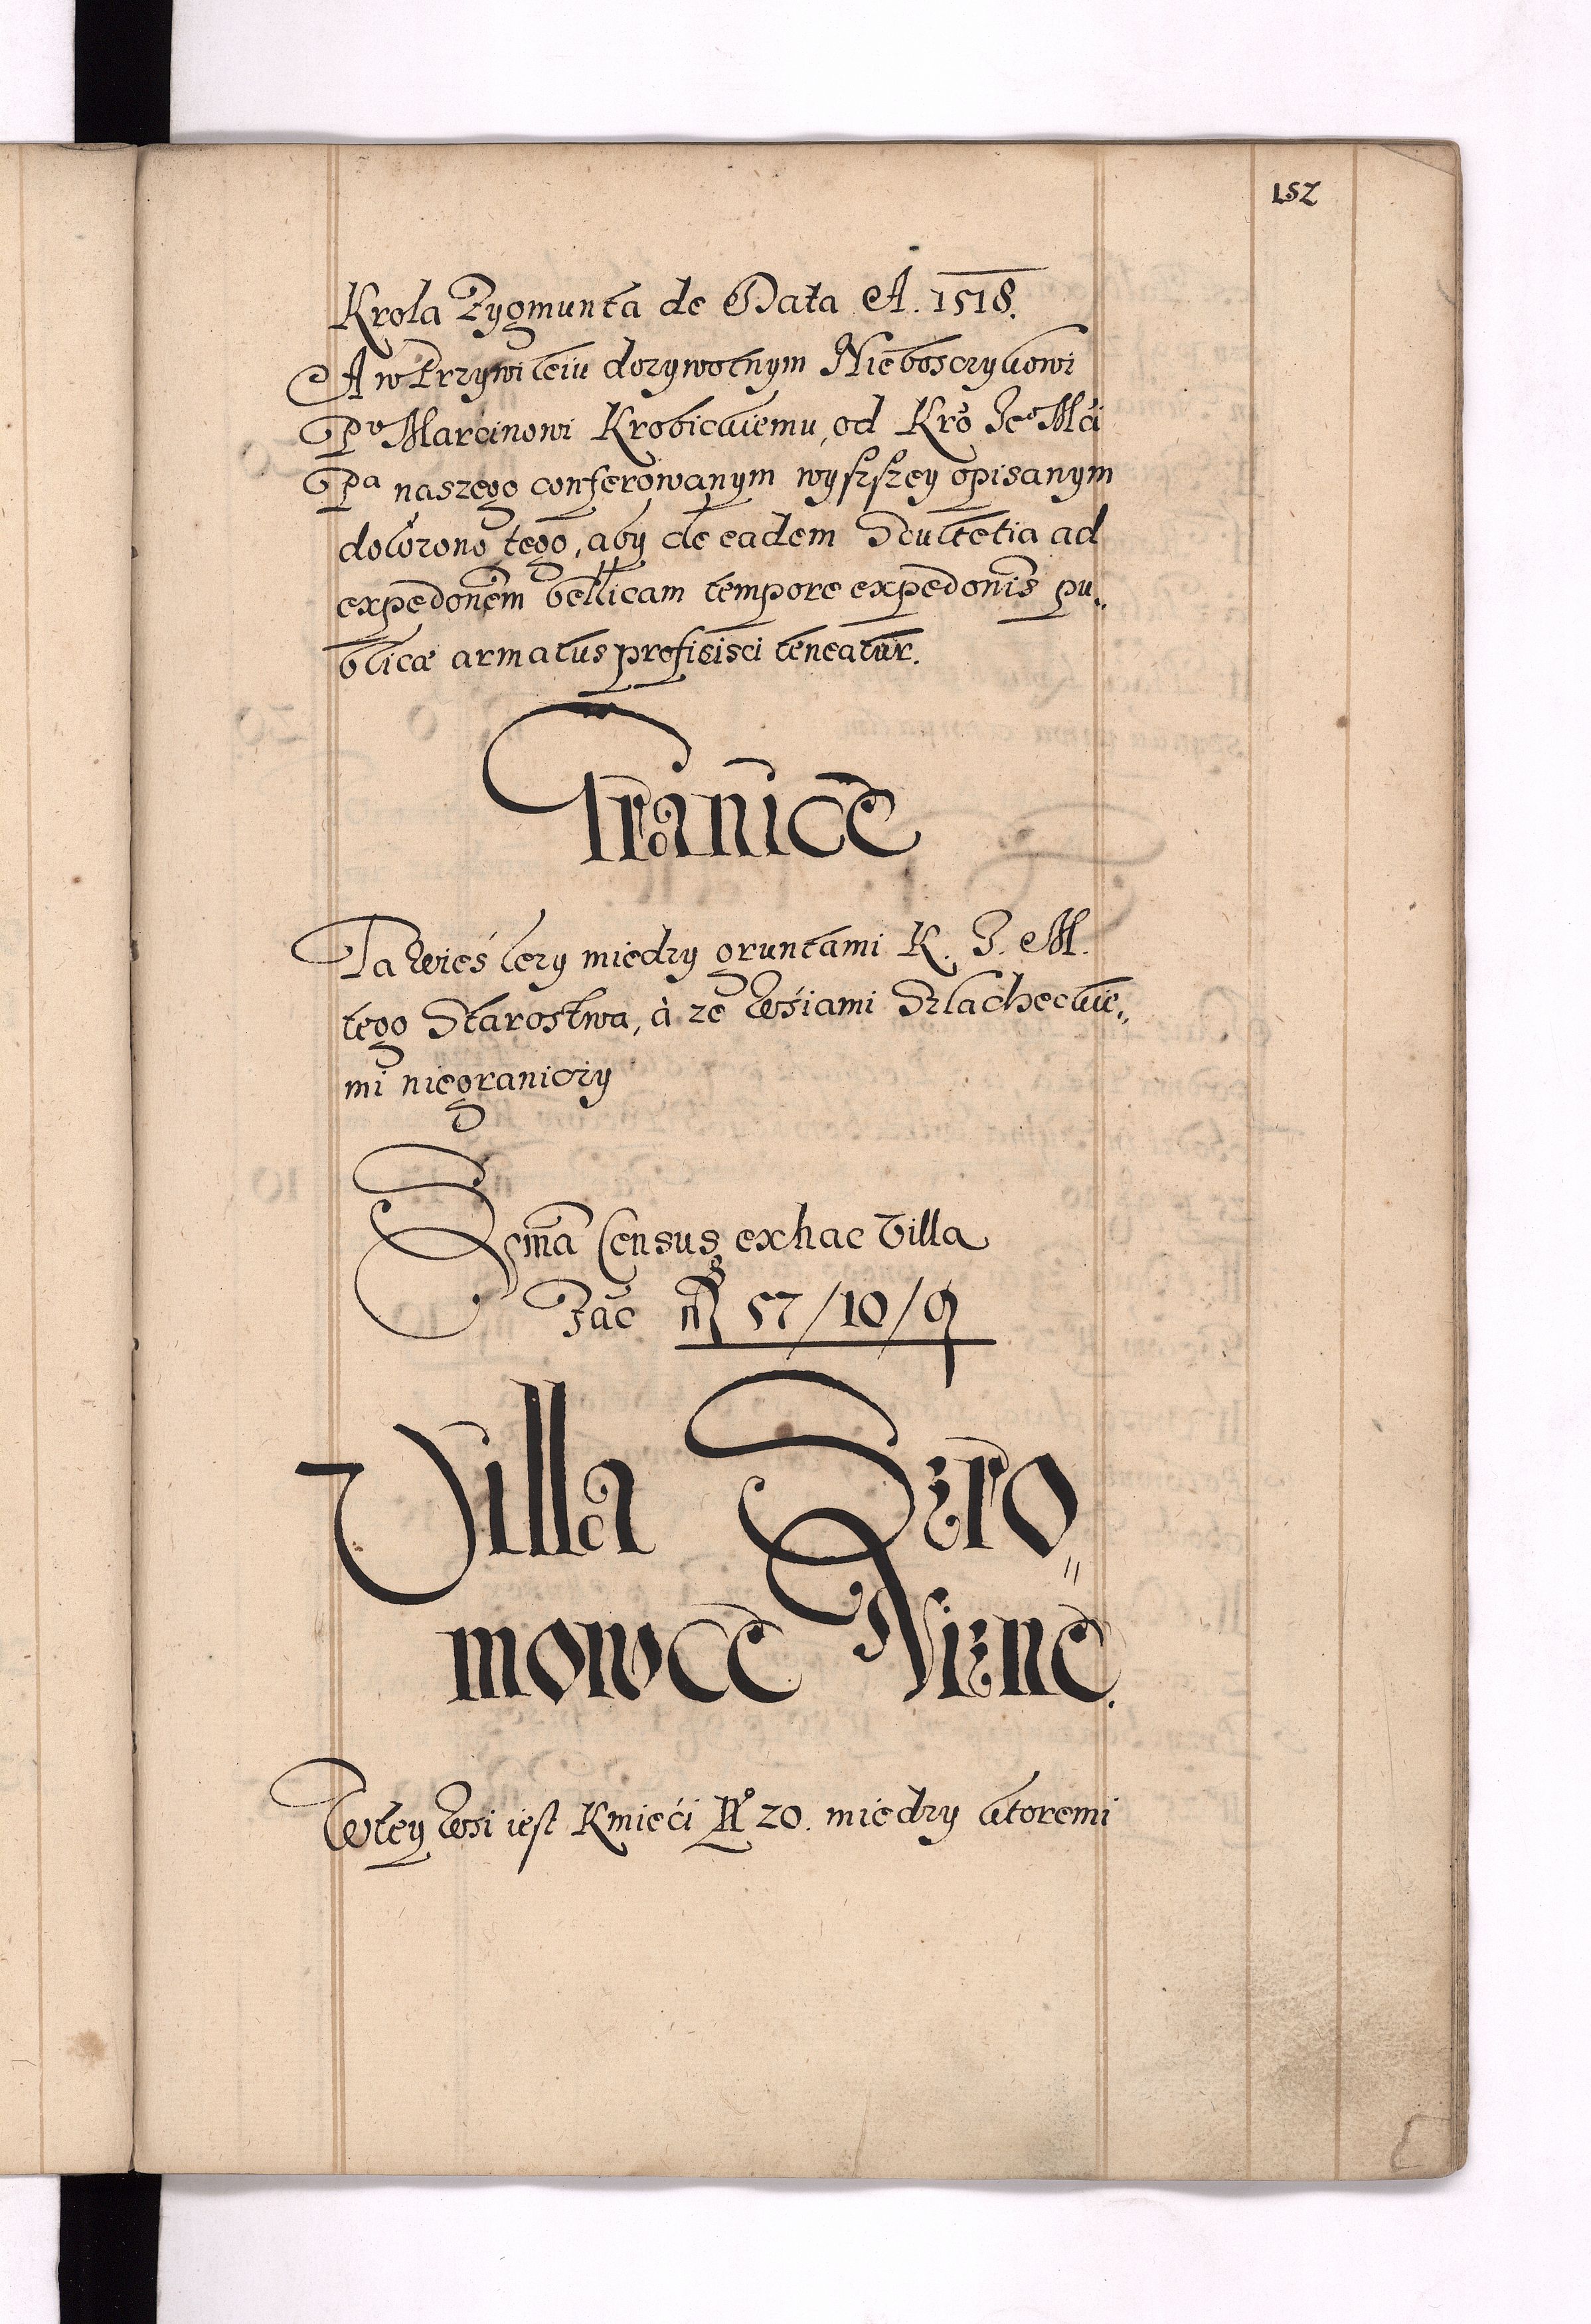 152
Krola Zygmunta de Data A. 1518.
A w Przywileiu dozywotnym Nieboszczykowi
Pu Marcinowi Krobickiemu, od Kro Jeo Mći
Pa naszego conferowanym wyszszey opisanym
dołożono tego, aby de eadem Scultetia ad
expedonem bellicam tempore expedonis pu„
blicæ armatus proficisci teneatur.
Granice
Ta Wieś leży miedzy gruntami K. J. M.
tego Starostwa, à ze Wśiami Szlacheckie„
mi niegraniczy
Sṁa Census ex hac Villa
Fac 57/10/9
Villa Szro„
mowce Nizne.
W tey Wsi iest Kmieći No 20. miedzy ktoremi